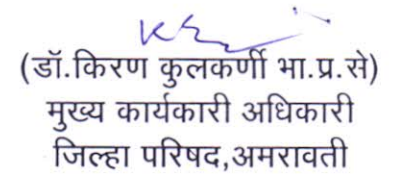 (डॉ.किरण कुलकर्णी भा.प्र.से)
मुख्य कार्यकारी अधिकारी
जिल्हा परिषद,अमरावती